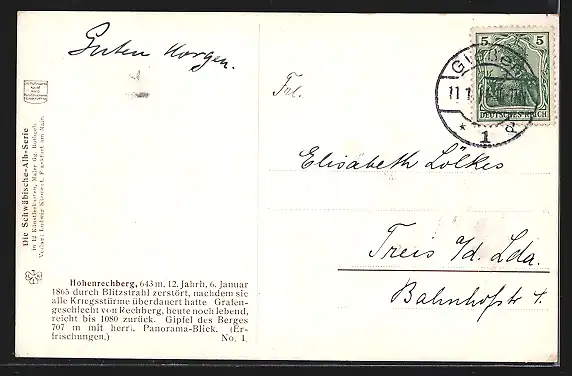 Guten Morgen.
5 5
DEUTSCHES REICH
11.1
* 1 d
Frl.
Elisabeth Lölkes
Treis a/d. Lda.
Bahnhofstr 1.
Die Schwäbische-Alb-Serie
in 12 Künstlerkarten, Maler
Verlag Ludwig Klement, Frankfurt am Main.
Hohenrechberg, 643 m. 12. Jahrh. 6. Januar
1865 durch Blitzstrahl zerstört, nachdem sie
alle Kriegsstürme überdauert hatte Grafen-
geschlecht von Rechberg, heute noch lebend,
reicht bis 1080 zurück. Gipfel des Berges
707 m mit herrl. Panorama-Blick. (Er-
frischungen.) No. 1.